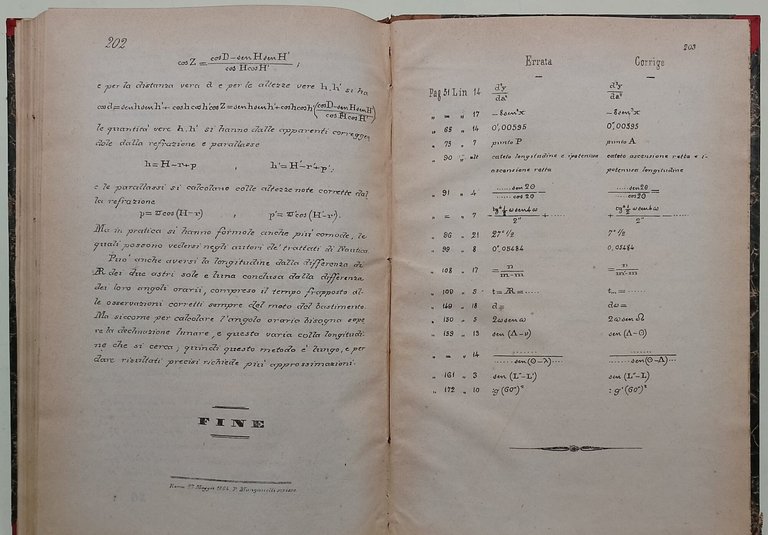 202
cos Z = (cos D - sen H sen H') / (cos H cos H') ,
e per la distanza vera d e per le altezze vere h, h' si ha
cos d = sen h sen h' + cos h cos h' cos Z = sen h sen h' + cos h cos h' (cos D - sen H sen H') / (cos H cos H')
le quantità vere h, h' si hanno dalle apparenti correggen
dole dalla refrazione e parallasse
h = H - r + p , h' = H' - r' + p';
e le parallassi si calcolano colle altezze note corrette dal
la refrazione
p = ϖ cos (H - r) , p' = ϖ' cos (H' - r').
Ma in pratica si hanno formole anche più comode, le
quali possono vedersi negli autori de' trattati di Nautica.
Può anche aversi la longitudine dalla differenza di
Æ dei due astri sole e luna conclusa dalla differenza
dei loro angoli orarii, compreso il tempo frapposto al
le osservazioni corretti sempre del moto del bastimento.
Ma siccome per calcolare l'angolo orario bisogna sape
re la declinazione lunare, e questa varia colla longitudi
ne che si cerca, quindi questo metodo è lungo, e per
dare risultati precisi richiede più approssimazioni.
FINE
Roma Maggio
203
Errata Corrige
Pag 51 Lin 14 d²y/dx² d²y/dx²
„ = „ 17 - 8 sen² x - 8 sen² x
„ 68 „ 14 0",00595 0",00595
„ 75 „ 7 punto P punto A
„ 90 „ ult cateto longitudine e ipotenusa cateto ascensione retta e i-
ascensione retta potenusa longitudine
„ 91 „ 4 ......sen 2Θ / ......cos 2Θ ......sen 2Θ / ......cos 2Θ
„ = „ 7
„ 96 „ 21 27" ½ 7" ½
„ 99 „ 8 0",05484 0,05484
„ 108 „ 17 = n / (m-m) = n / (m'-m)
„ 109 „ 5 t = Æ = ...... t... = ......
„ 149 „ 18 d = dω =
„ 150 „ 5 2ω sen ω 2ω sen Ω
„ 159 „ 13 sen (Λ - υ) sen (Λ - Θ)
„ = „ 14 ...... / ......sen (Θ - λ)... ...... / ......sen (Θ - Λ)...
„ 161 „ 3 sen (L' - L') sen (L' - L)
„ 172 „ 10 : g (60")² : g' (60")²